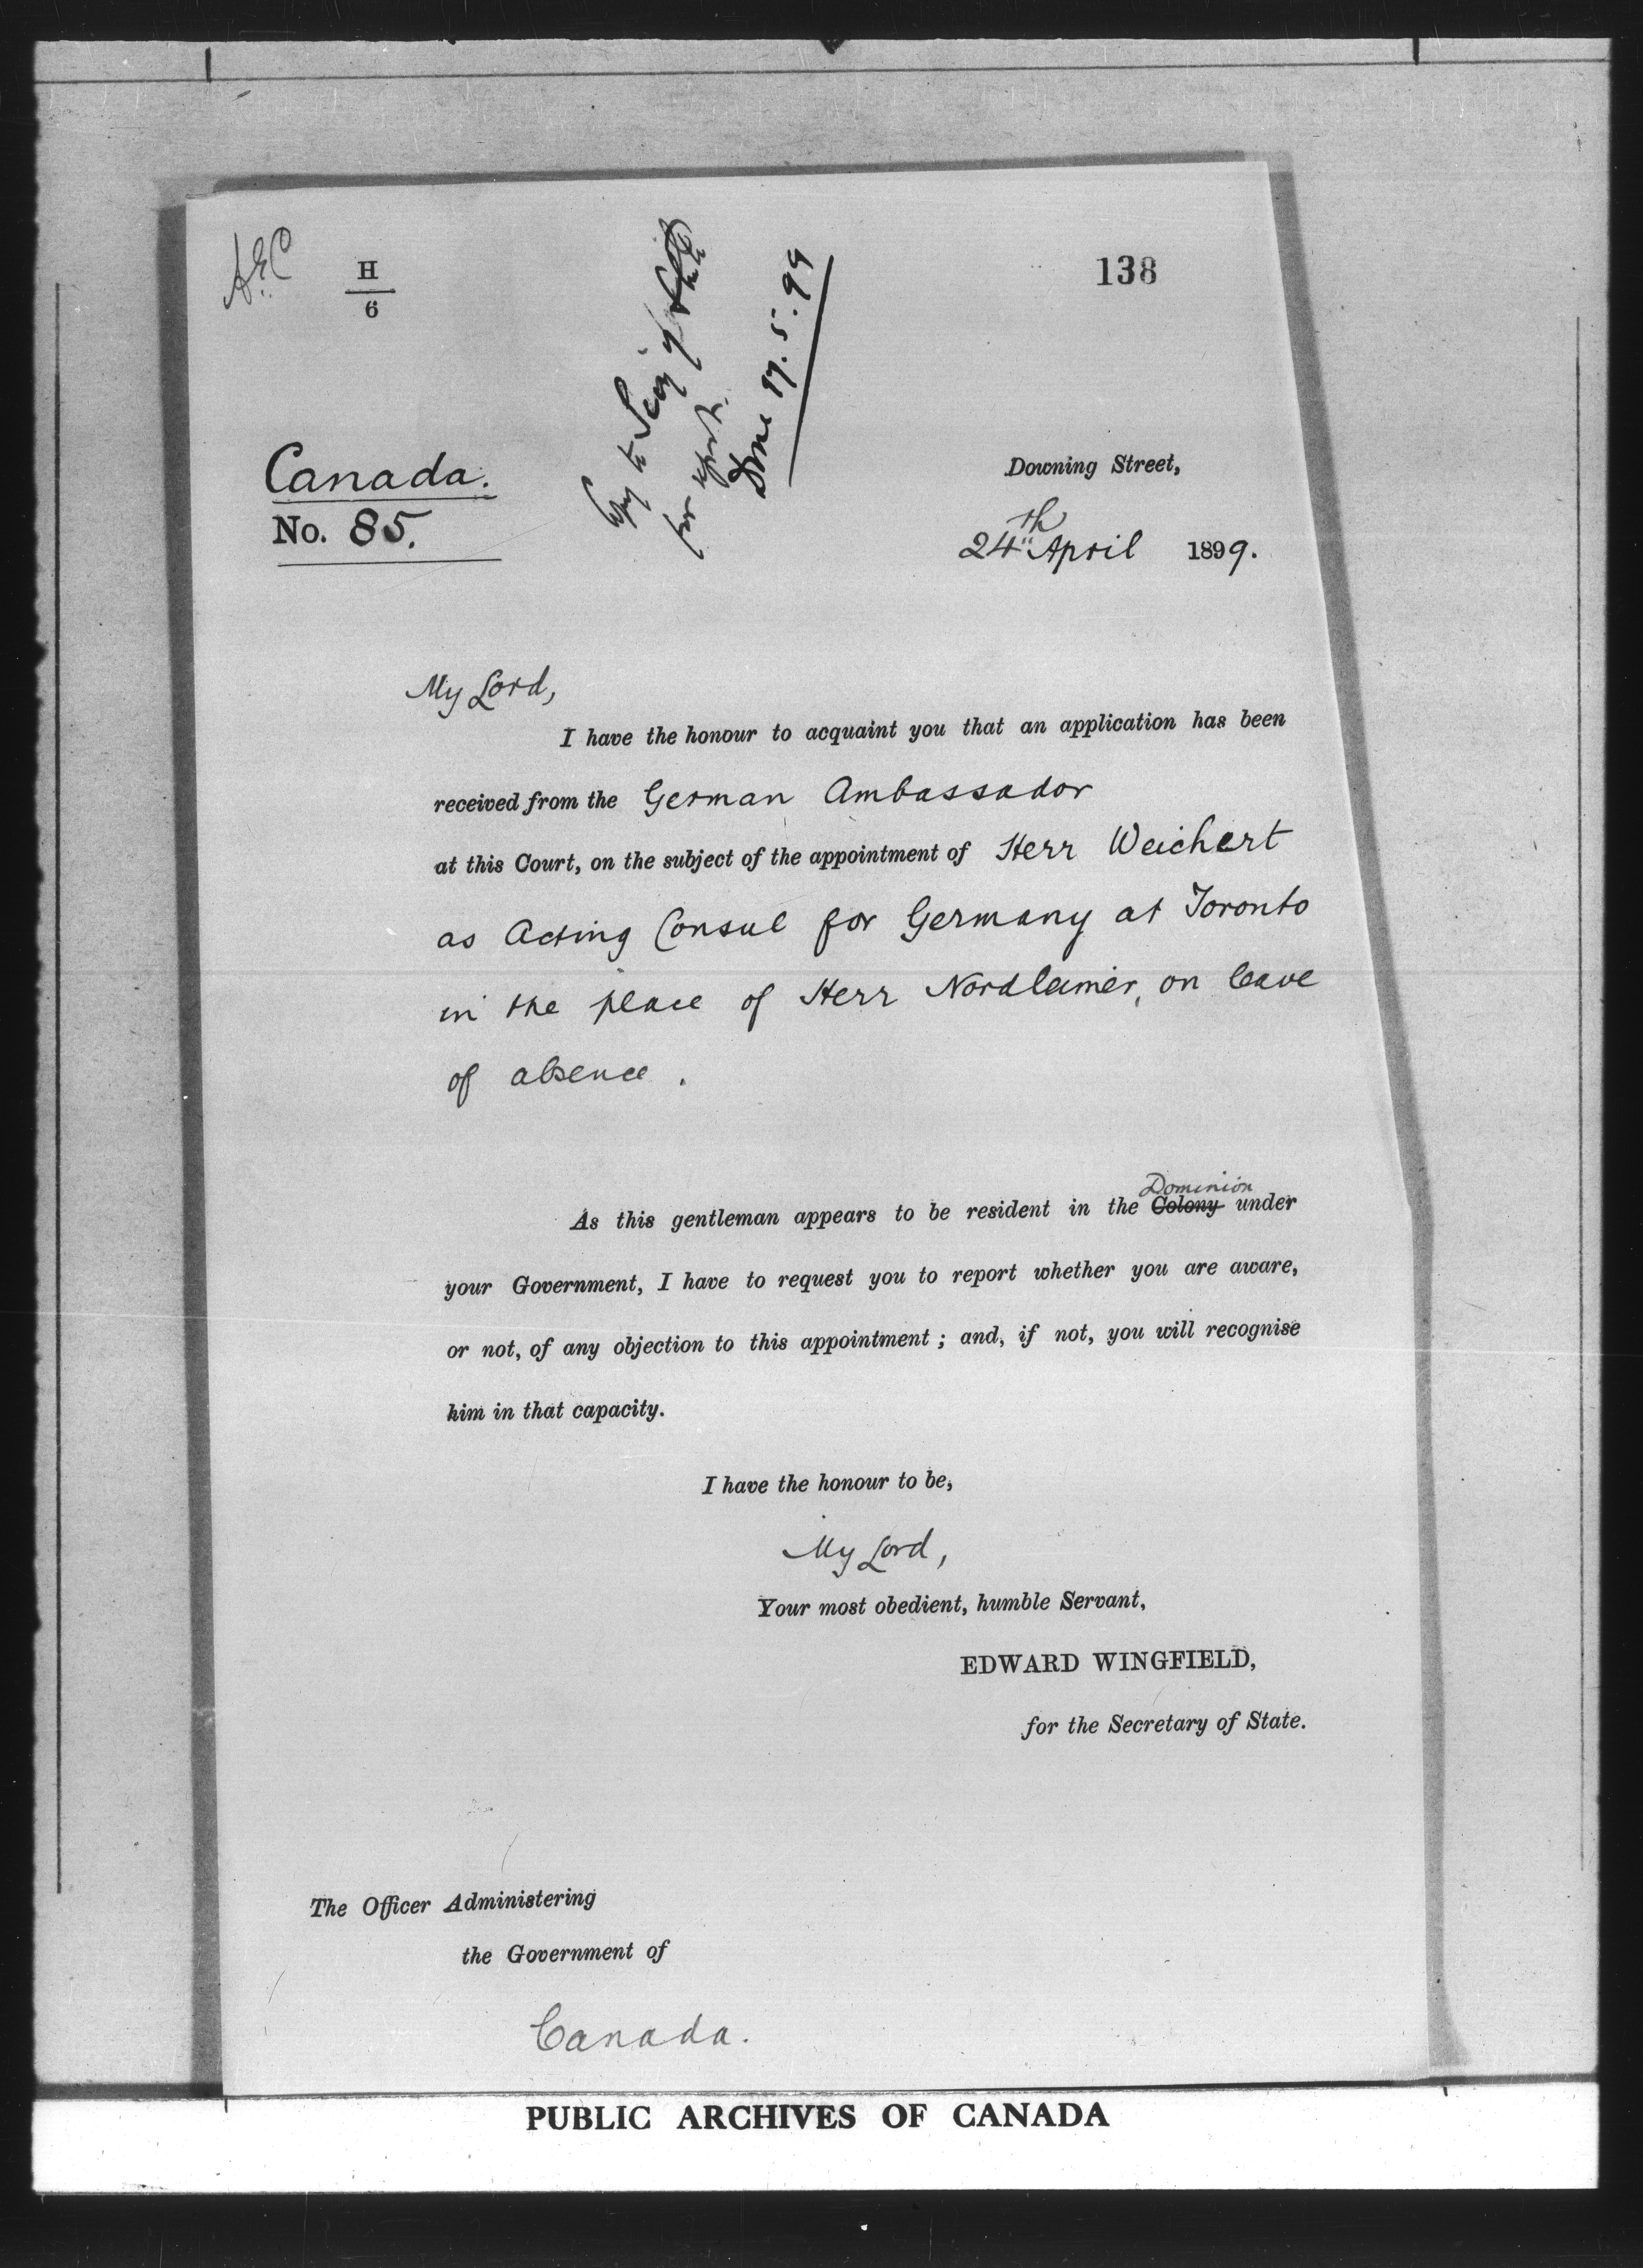 H
6
138
Copy to Secy of State
for report.
Done 17.5.99
Canada.
No. 85.
Downing Street,
24th April 1899.
My Lord,
I have the honour to acquaint you that an application has been
received from the German Ambassador
at this Court, on the subject of the appointment of Herr Weichert
as Acting Consul for Germany at Toronto
in the place of Herr Nordheimer, on leave
of absence.
Dominion
As this gentleman appears to be resident in the Colony under
your Government, I have to request you to report whether you are aware,
or not, of any objection to this appointment; and, if not, you will recognise
him in that capacity.
I have the honour to be,
My Lord,
Your most obedient, humble Servant,
EDWARD WINGFIELD,
for the Secretary of State.
The Officer Administering
the Government of
Canada.
PUBLIC ARCHIVES OF CANADA